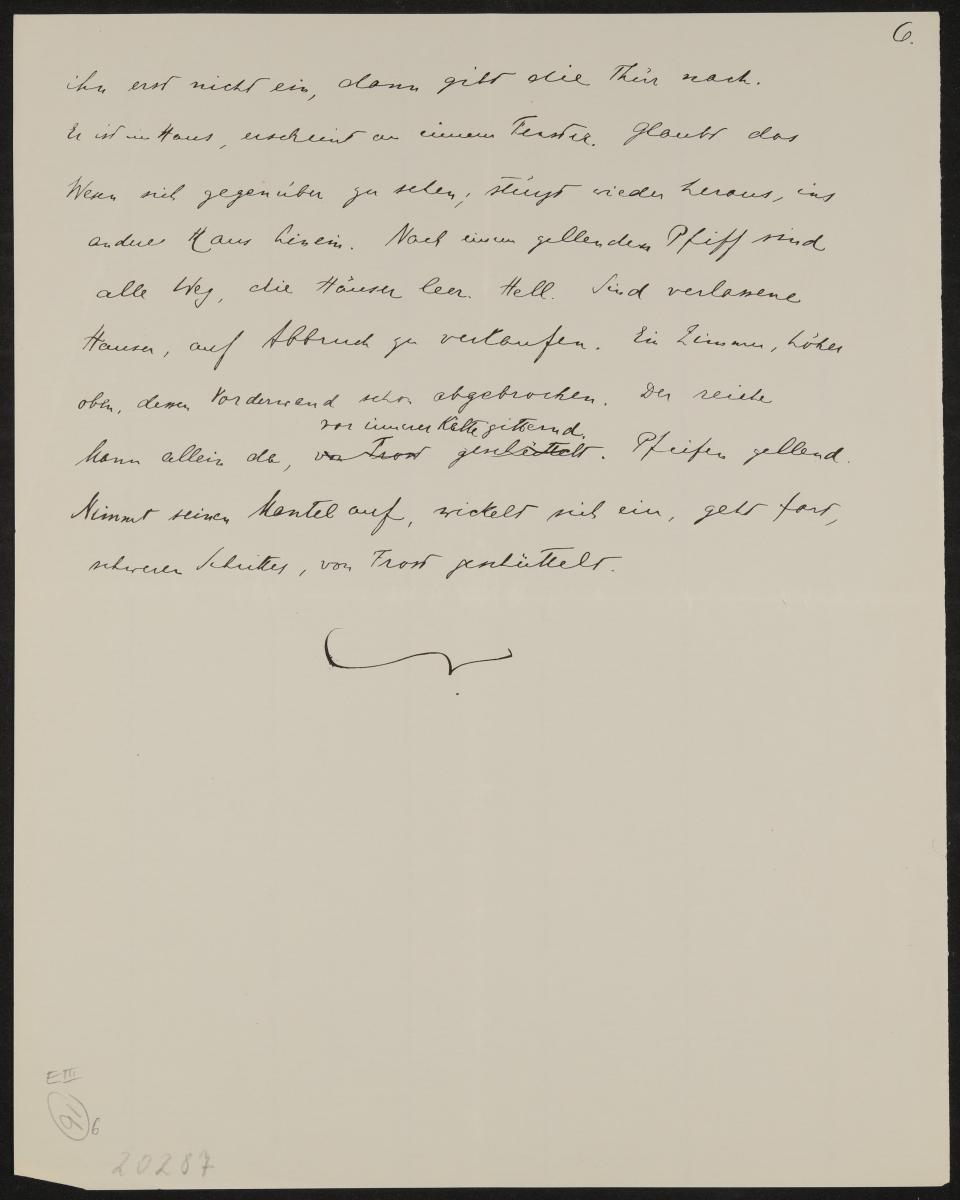 6.
ihn erst nicht ein, dann gibt die Thür nach.
Er ist im Haus, erscheint an einem Fenster. Glaubt das
Wesen sich gegenüber zu sehen, stürzt wieder heraus, ins
andere Haus hinein. Nach einem gellenden Pfiff sind
alle Weg, die Häuser leer. Hell. Sind verlassene
Häuser, auf Abbruch zu verkaufen. Ein Zimmer, höher
oben, dessen Vorderwand schon abgebrochen. Der reiche
vor innerer Kälte zitternd.
Mann allein da, von Frost geschüttelt. Pfeifen gellend.
Nimmt seinen Mantel auf, wickelt sich ein, geht fort,
schweren Schrittes, von Frost geschüttelt.
E III
91 6
20287